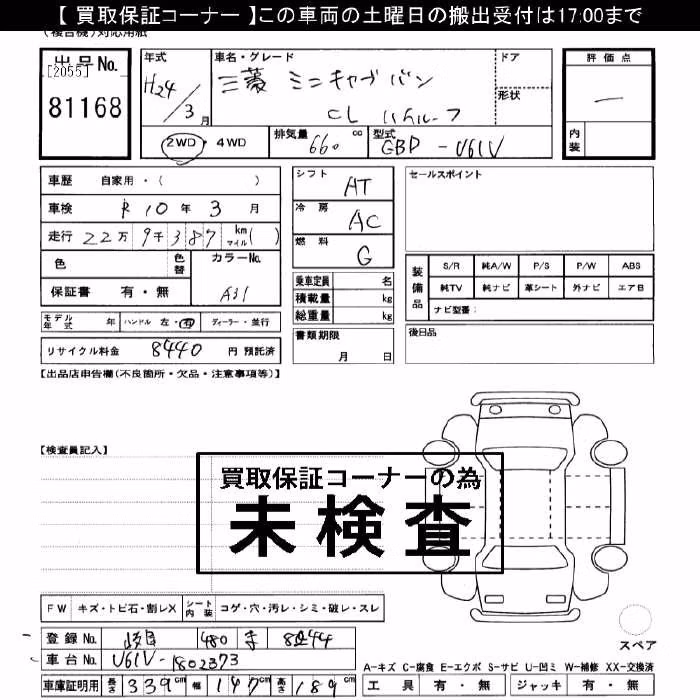 【 買取保証コーナー 】この車両の土曜日の搬出受付は17:00まで
(複合機)対応用紙
出品No.
[2055]
81168
年式
H24/3月
車名・グレード
三菱 ミニキャブバン
CL ハイルーフ
ドア
形状
評価点
—
内装
2WD ・ 4WD
排気量 660 cc
型式 GBD - U61V
車歴 自家用・( )
車検 R 10 年 3 月
走行 22万 9千387 km マイル( )
色 色替
カラーNo.
A31
保証書 有・無
モデル年式 年 ハンドル 左・右 ディーラー・並行
リサイクル料金 8440 円 預託済
シフト AT
冷房 AC
燃料 G
乗車定員 名
積載量 kg
総重量 kg
書類期限
月 日
セールスポイント
装備品
S/R 純A/W P/S P/W ABS
純TV 純ナビ 革シート 外ナビ エアB
ナビ型番:
後日品
【出品店申告欄(不良箇所・欠品・注意事項等)】
【検査員記入】
買取保証コーナーの為
未検査
FW キズ・トビ石・割レX シート内装 コゲ・穴・汚レ・シミ・破レ・スレ
登録No. 480 8044
車台No. U61V-1802373
車庫証明用 長さ 339cm 幅 147cm 高さ 189cm
スペア
A-キズ C-腐食 E-エクボ S-サビ U-凹ミ W-補修 XX-交換済
工具 有・無 ジャッキ 有・無